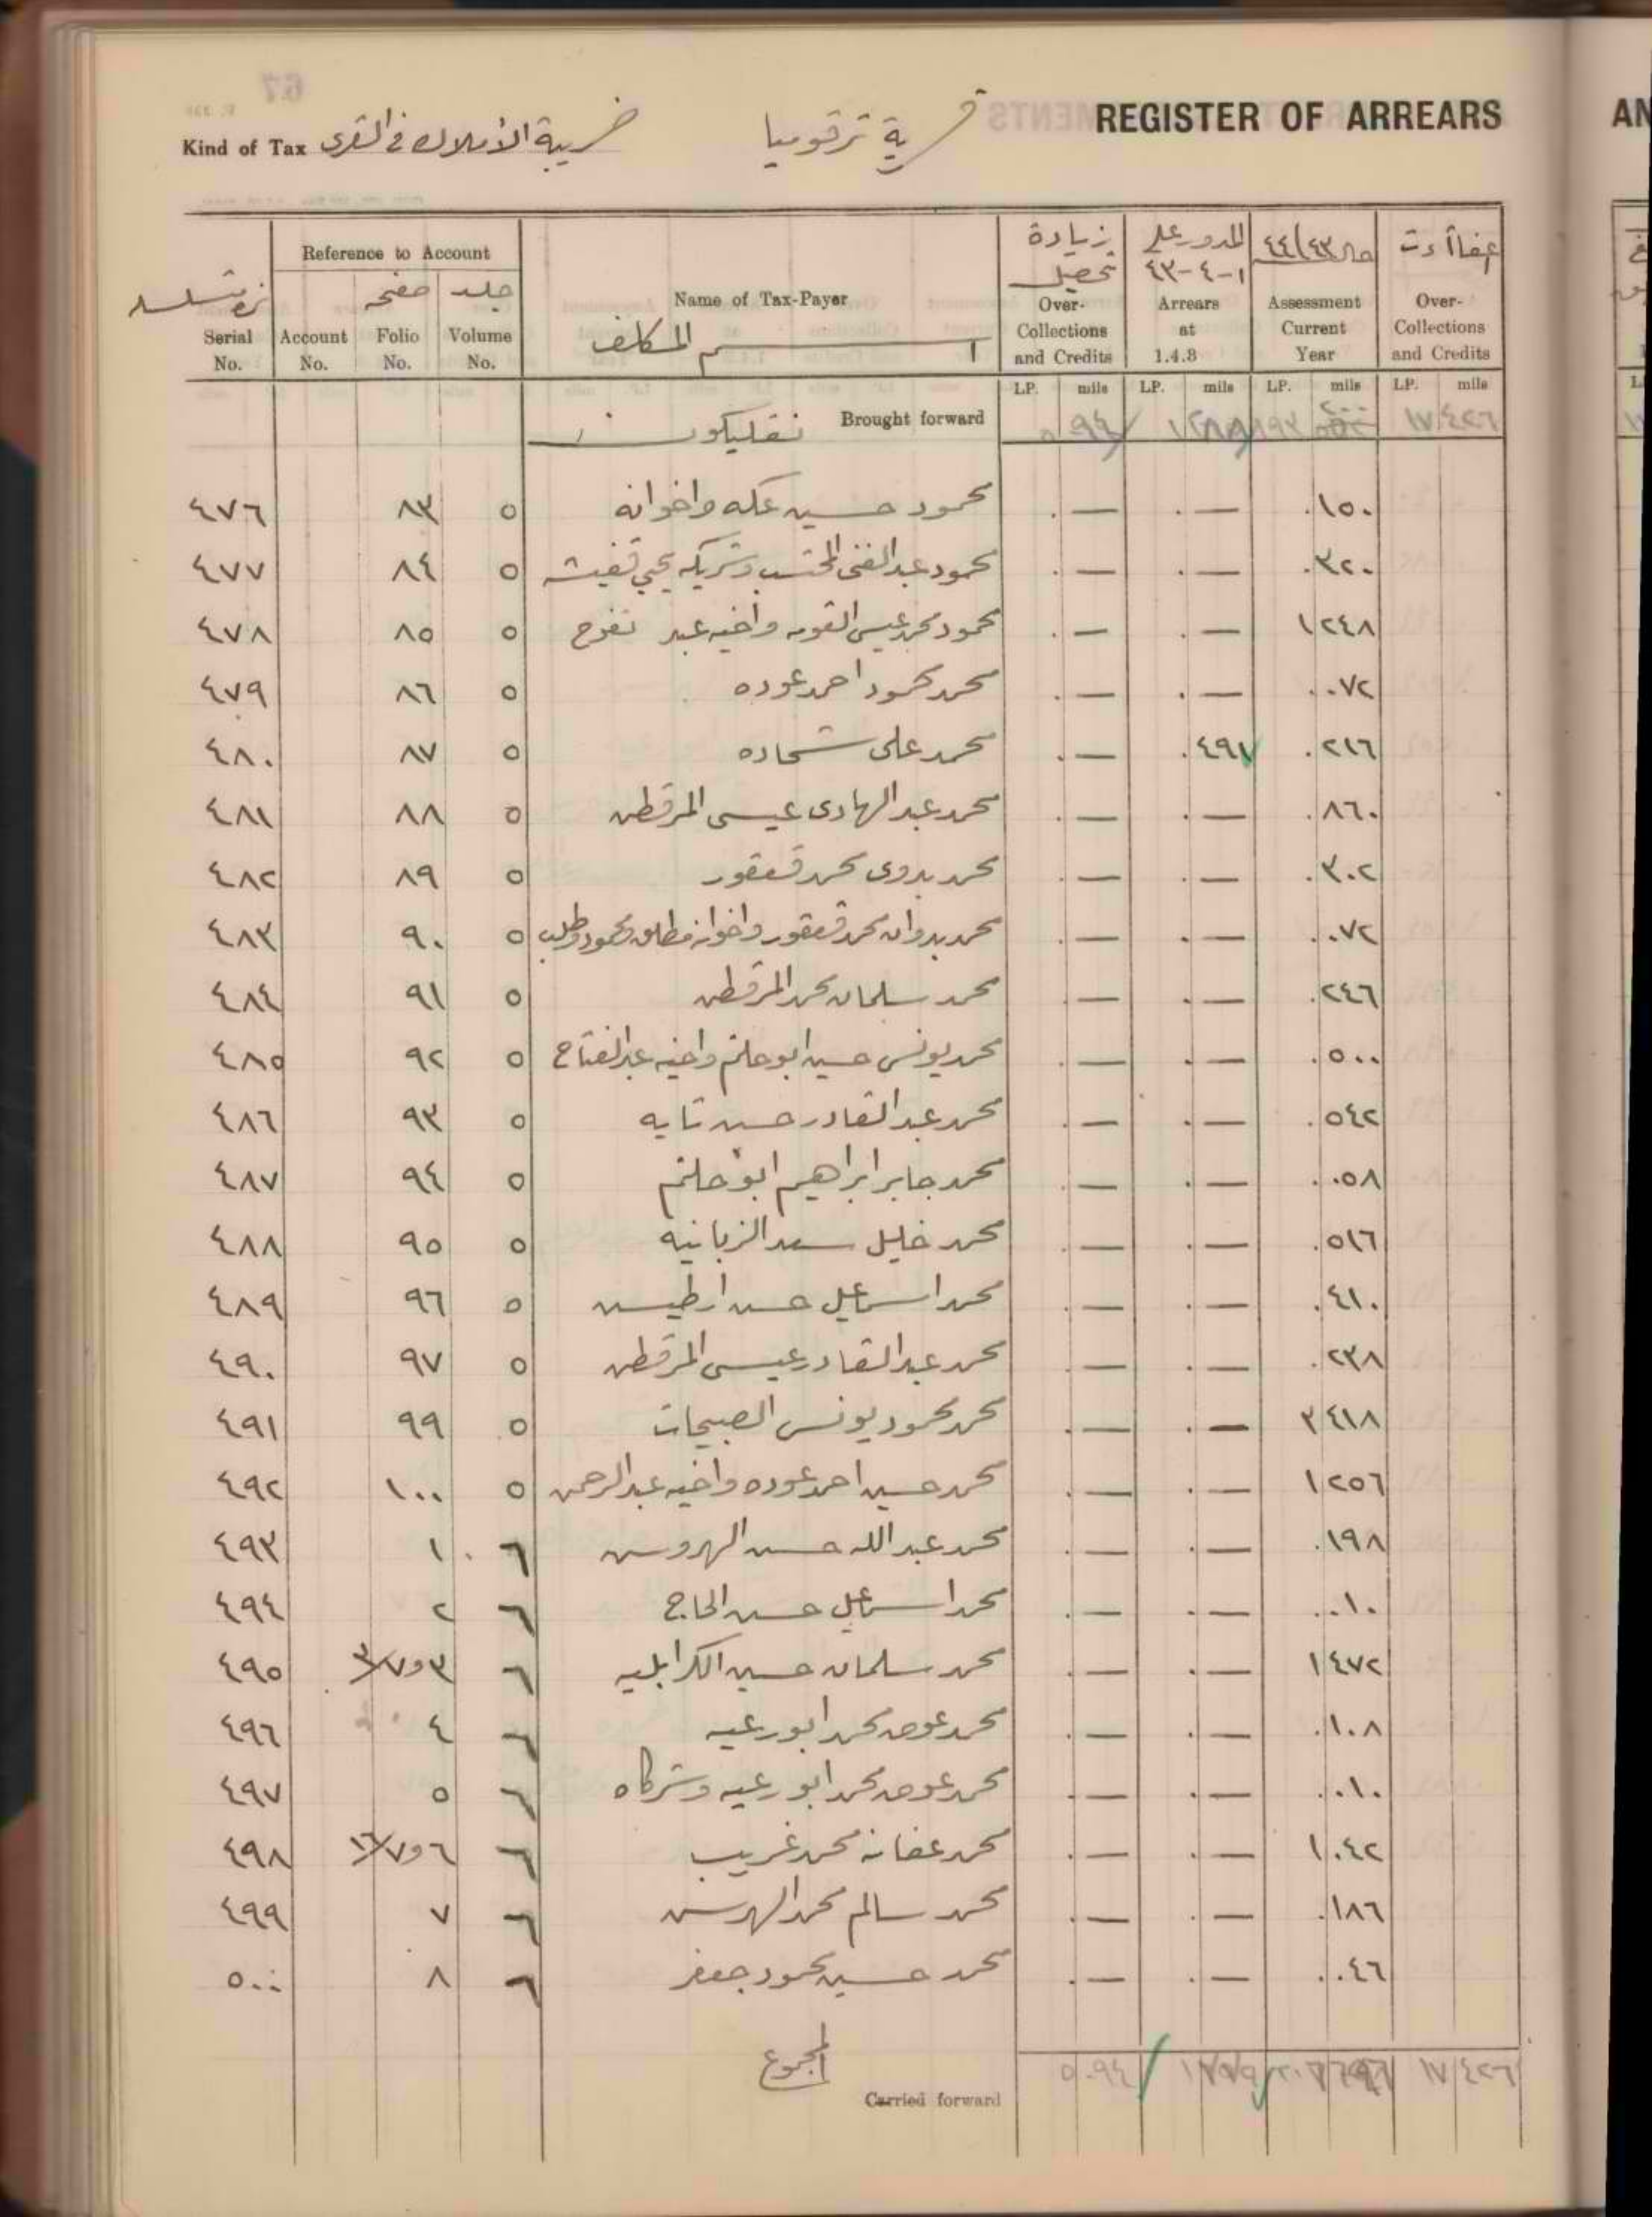 REGISTER OF ARREARS
قرية ترقوميا
Kind of Tax ضريبة الأملاك في القرى
Reference to Account
Serial No. Account No. صفحه Folio No. جلد Volume No. Name of Tax-Payer اسم المكلف زيادة تحصيل Over-Collections and Credits المدور على ١-٤-٤٣ Arrears at 1.4.3 ٤٤/٤٣ Assessment Current Year Over-Collections and Credits
LP. mils LP. mils LP. mils LP. mils
Brought forward ١٧ ٤٢٦
٤٧٦ ٨٣ ٥ محمود حسين عكه واخوانه . — . — .١٥٠
٤٧٧ ٨٤ ٥ محمود عبد الغني المحتسب وشريكه يحيي قفيشه . — . — .٣٢٠
٤٧٨ ٨٥ ٥ محمود محمد عيسى واخيه عبد تفوح . — . — ١٢٤٨
٤٧٩ ٨٦ ٥ محمد محمود احمد عوده . — . — ..٧٢
٤٨٠ ٨٧ ٥ محمد على شحاده . — .٤٩١ .٢١٦
٤٨١ ٨٨ ٥ محمد عبد الهادى عيسى المرقطن . — . — .٨٦٠
٤٨٢ ٨٩ ٥ محمد بدوى محمد قعقور . — . — .٣٠٢
٤٨٣ ٩٠ ٥ محمد بدوان محمد قعقور واخوانه مطلق ومحمود وطلب . — . — ..٧٢
٤٨٤ ٩١ ٥ محمد سلمان محمد المرقطن . — . — .٢٤٦
٤٨٥ ٩٢ ٥ محمد يونس حسين ابو حلتم واخيه عبد الفتاح . — . — .٥٠٠
٤٨٦ ٩٣ ٥ محمد عبد القادر حسن تايه . — . — .٥٤٢
٤٨٧ ٩٤ ٥ محمد جابر ابراهيم ابو حلتم . — . — ..٥٨
٤٨٨ ٩٥ ٥ محمد خليل سعد الزبانيه . — . — .٥١٦
٤٨٩ ٩٦ ٥ محمد اسماعيل حسن ارطيسه . — . — .٤١٠
٤٩٠ ٩٧ ٥ محمد عبد القادر عيسى المرقطن . — . — .٢٣٨
٤٩١ ٩٩ ٥ محمد محمود يونس الصبيحات . — . — ٣٤١٨
٤٩٢ ١٠٠ ٥ محمد حسين احمد عوده واخيه عبد الرحمن . — . — ١٢٥٦
٤٩٣ ١ ٦ محمد عبد الله حسن . — . — .١٩٨
٤٩٤ ٢ ٦ محمد اسماعيل حسن الحاج . — . — ..١٠
٤٩٥ ٣و٣/٧ ٦ محمد سلمان حسين الكرابليه . — . — ١٤٧٢
٤٩٦ ٤ ٦ محمد عوض محمد ابو رعيه . — . — .١٠٨
٤٩٧ ٥ ٦ محمد عوض محمد ابو رعيه وشركاه . — . — ..١٠
٤٩٨ ٦و١٦/٧ ٦ محمد عفانه محمد غريب . — . — ١٠٤٢
٤٩٩ ٧ ٦ محمد سالم محمد . — . — .١٨٦
٥٠٠ ٨ ٦ محمد حسين محمود جعفر . — . — ..٤٦
المجموع
Carried forward ٥.٩٤ ١٧ ٤٢٦